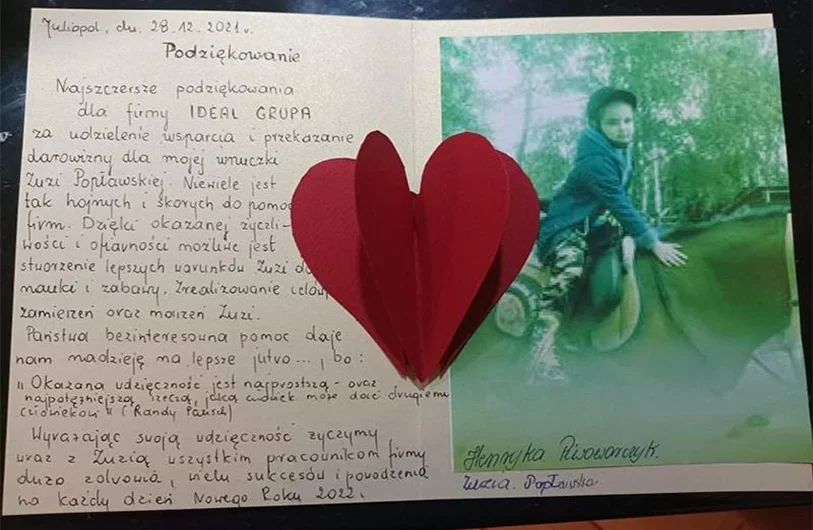 Juliopol, dn. 28.12.2021r.
Podziękowanie
Najszczersze podziękowania
dla firmy IDEAL GRUPA
za udzielenie wsparcia i przekazanie
darowizny dla mojej wnuczki
Zuzi Popławskiej. Niewiele jest
tak hojnych i skorych do pomoc
firm. Dzięki okazanej życzli-
wości i ofiarności możliwe jest
stworzenie lepszych warunków Zuzi do
nauki i zabawy. Zrealizowanie celów,
zamierzeń oraz marzeń Zuzi.
Państwa bezinteresowna pomoc daje
nam nadzieję na lepsze jutro..., bo:
"Okazana wdzięczność jest najprostszą - oraz
najpotężniejszą rzeczą, jaką człowiek może dać drugiemu
człowiekowi" (Randy Pausch)
Wyrażając swoją wdzięczność życzymy
wraz z Zuzią wszystkim pracownikom firmy
dużo zdrowia, wielu sukcesów i powodzenia
na każdy dzień Nowego Roku 2022r.
Henryka Piwowarczyk.
Zuzia. Popławska